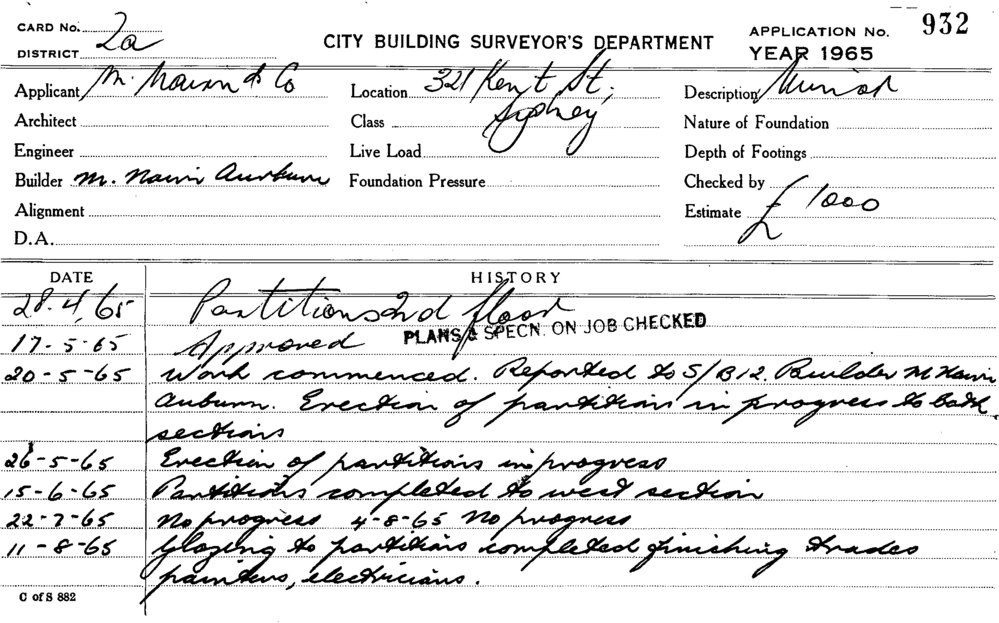 CARD No. 2a
DISTRICT
CITY BUILDING SURVEYOR'S DEPARTMENT
APPLICATION No. 932
YEAR 1965
Applicant M. Nawin & Co
Location 321 Kent St,
Sydney
Description
Architect
Class
Nature of Foundation
Engineer
Live Load
Depth of Footings
Builder M. Nawin Auburn
Foundation Pressure
Checked by
Alignment
Estimate £ 1000
D.A.
DATE HISTORY
28.4.65 Partitions 2d floor
17-5-65 Approved PLANS & SPECN. ON JOB CHECKED
20-5-65 Work commenced. Reported to S/B12. Builder M Nawin
Auburn. Erection of partitions in progress to both
sections
26-5-65 Erection of partitions in progress
15-6-65 Partitions completed to west section
22-7-65 No progress 4-8-65 No progress
11-8-65 Glazing to partitions completed finishing trades
painters, electricians.
C of S 882